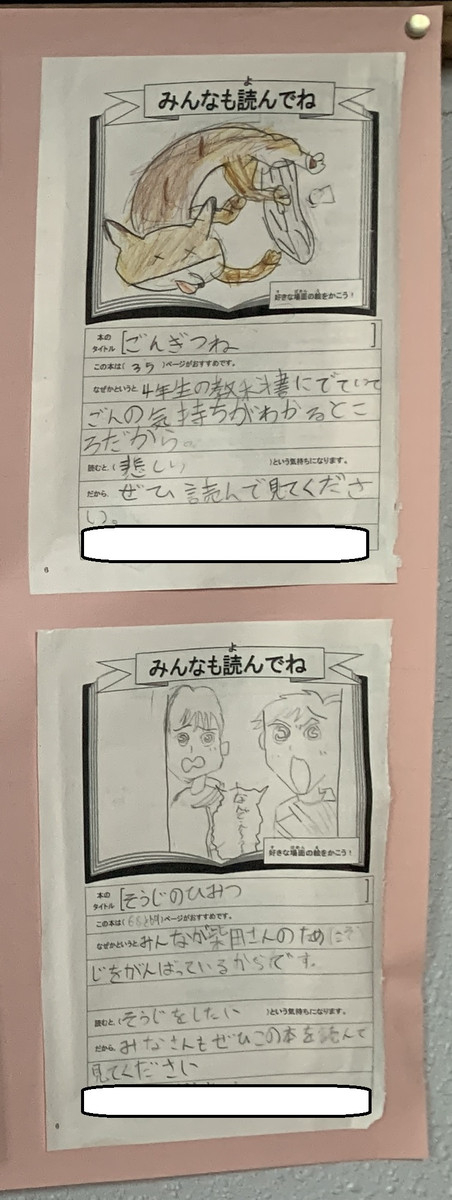 みんなも読んでね
好きな場面の絵をかこう!
本のタイトル [ごんぎつね]
この本は(35)ページがおすすめです。
なぜかというと 4年生の教科書にでていて
ごんの気持ちがわかるとこ
ろだから。
読むと、(悲しい)という気持ちになります。
だから、ぜひ読んで見てくださ
い。
6
みんなも読んでね
好きな場面の絵をかこう!
本のタイトル [そうじのひみつ]
この本は(68と69)ページがおすすめです。
なぜかというと みんなが柴田さんのためにそ
じをがんばっているからです。
読むと、(そうじをしたい)という気持ちになります。
だから、みなさんもぜひこの本を読んで
見てください
6